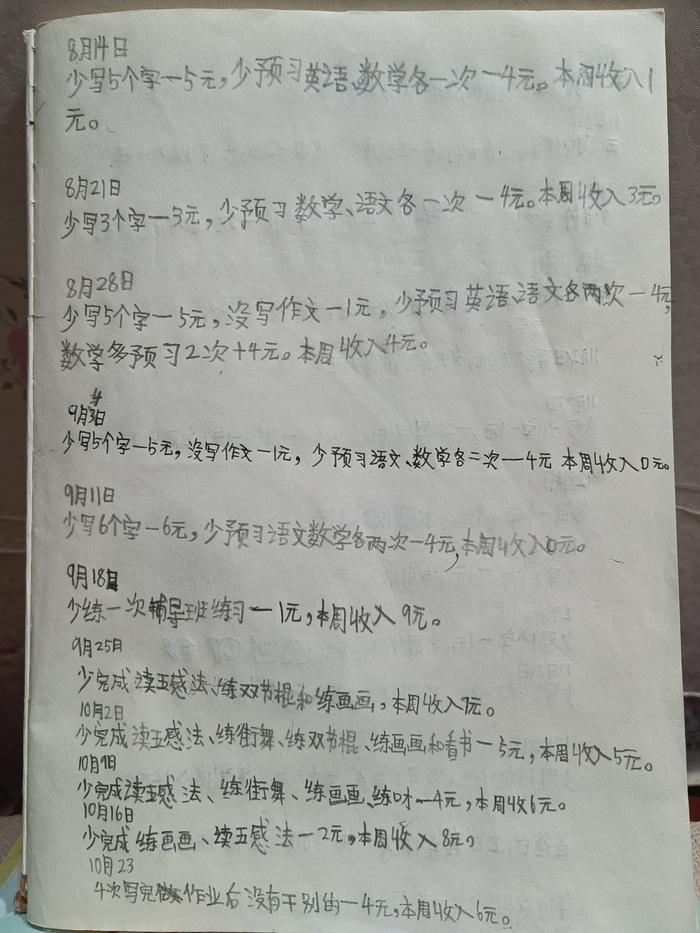 8月14日
少写5个字一5元,少预习英语、数学各一次一4元。本周收入1
元。
8月21日
少写3个字一3元,少预习数学、语文各一次一4元。本周收入3元。
8月28日
少写5个字一5元,没写作文一1元,少预习英语、语文各两次一4元,
数学多预习2次+4元。本周收入4元。
9月4日
少写5个字一5元,没写作文一1元,少预习语文、数学各二次一4元 本周收入0元。
9月11日
少写6个字一6元,少预习语文数学各两次一4元,本周收入0元。
9月18日
少练一次辅导班练习一1元,本周收入9元。
9月25日
少完成读五感法、练双节棍和练画画,本周收入7元。
10月2日
少完成读五感法、练街舞、练双节棍、练画画和看书一5元,本周收入5元。
10月9日
少完成读五感法、练街舞、练画画、练吹一4元,本周收6元。
10月16日
少完成练画画、读五感法一2元,本周收入8元。
10月23
4次写完作业后没有干别的一4元,本周收入6元。